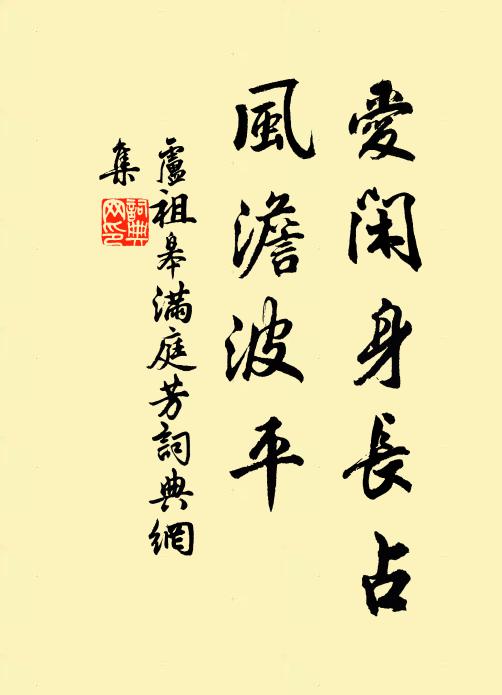 愛閑身長占
風澹波平
盧祖皋滿庭芳詞典網
集
詞典網印